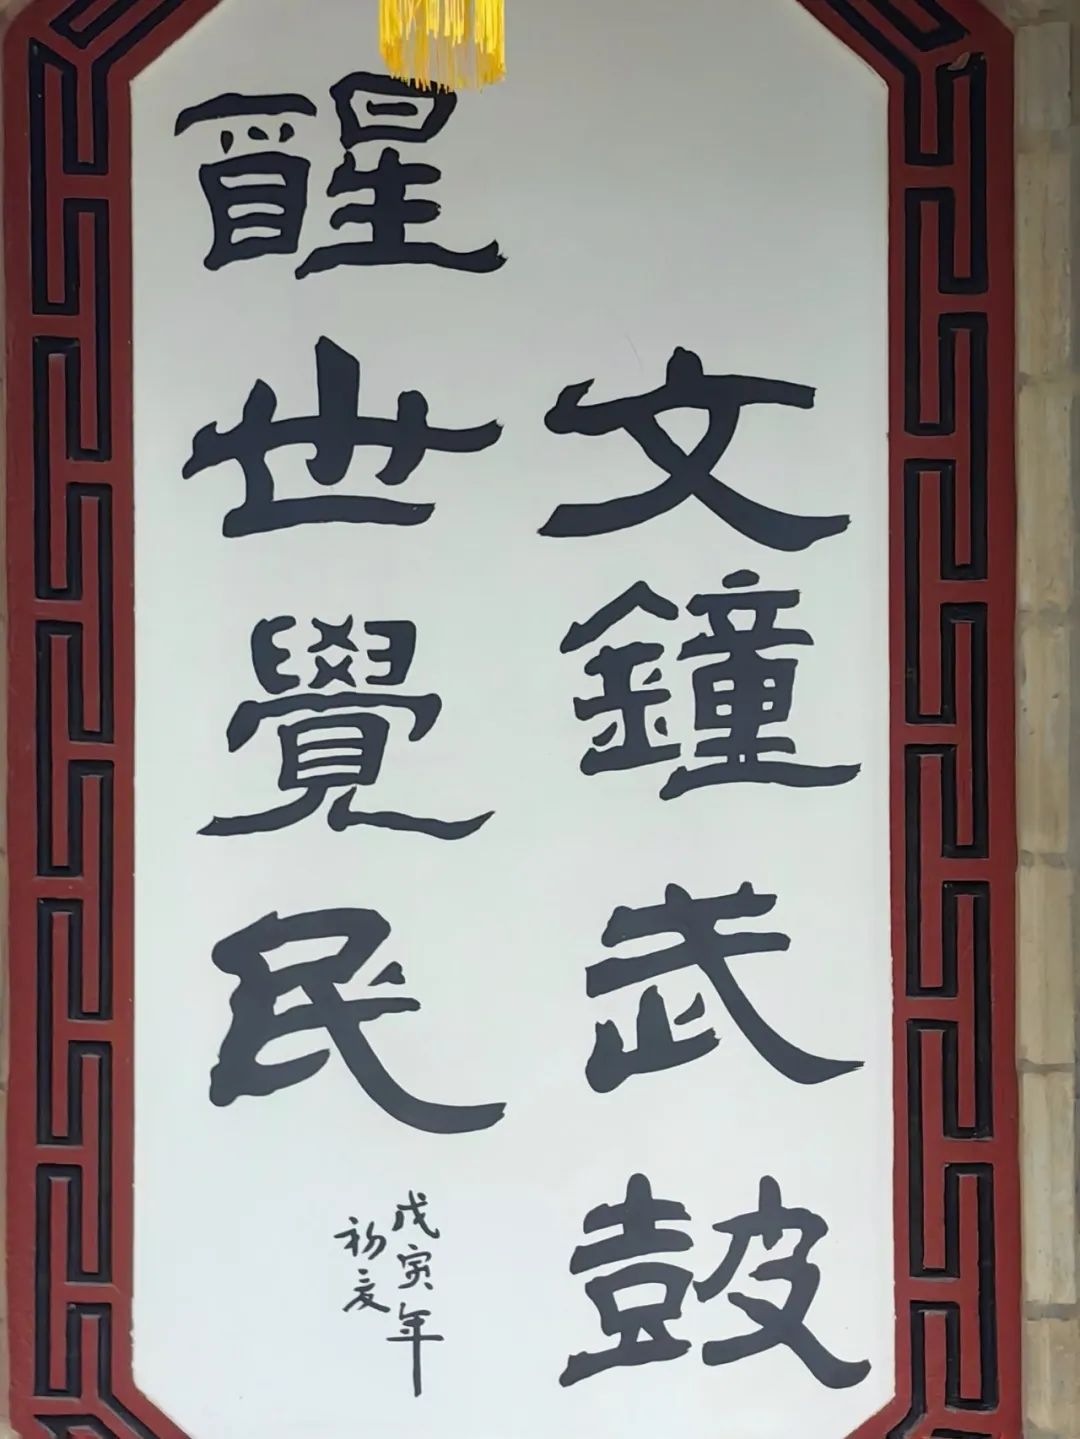 文鐘武鼓
醒世覺民
戊寅年
初夏